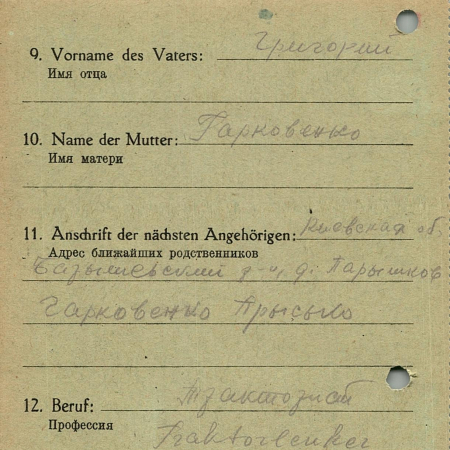 9. Vorname des Vaters: Григорий
Имя отца
10. Name der Mutter: Гарковенко
Имя матери
11. Anschrift der nächsten Angehörigen: Киевская об.
Адрес ближайших родственников
д. Парышков
Гарковенко Прысько
12. Beruf: Тракторист
Профессия
Traktorlenker